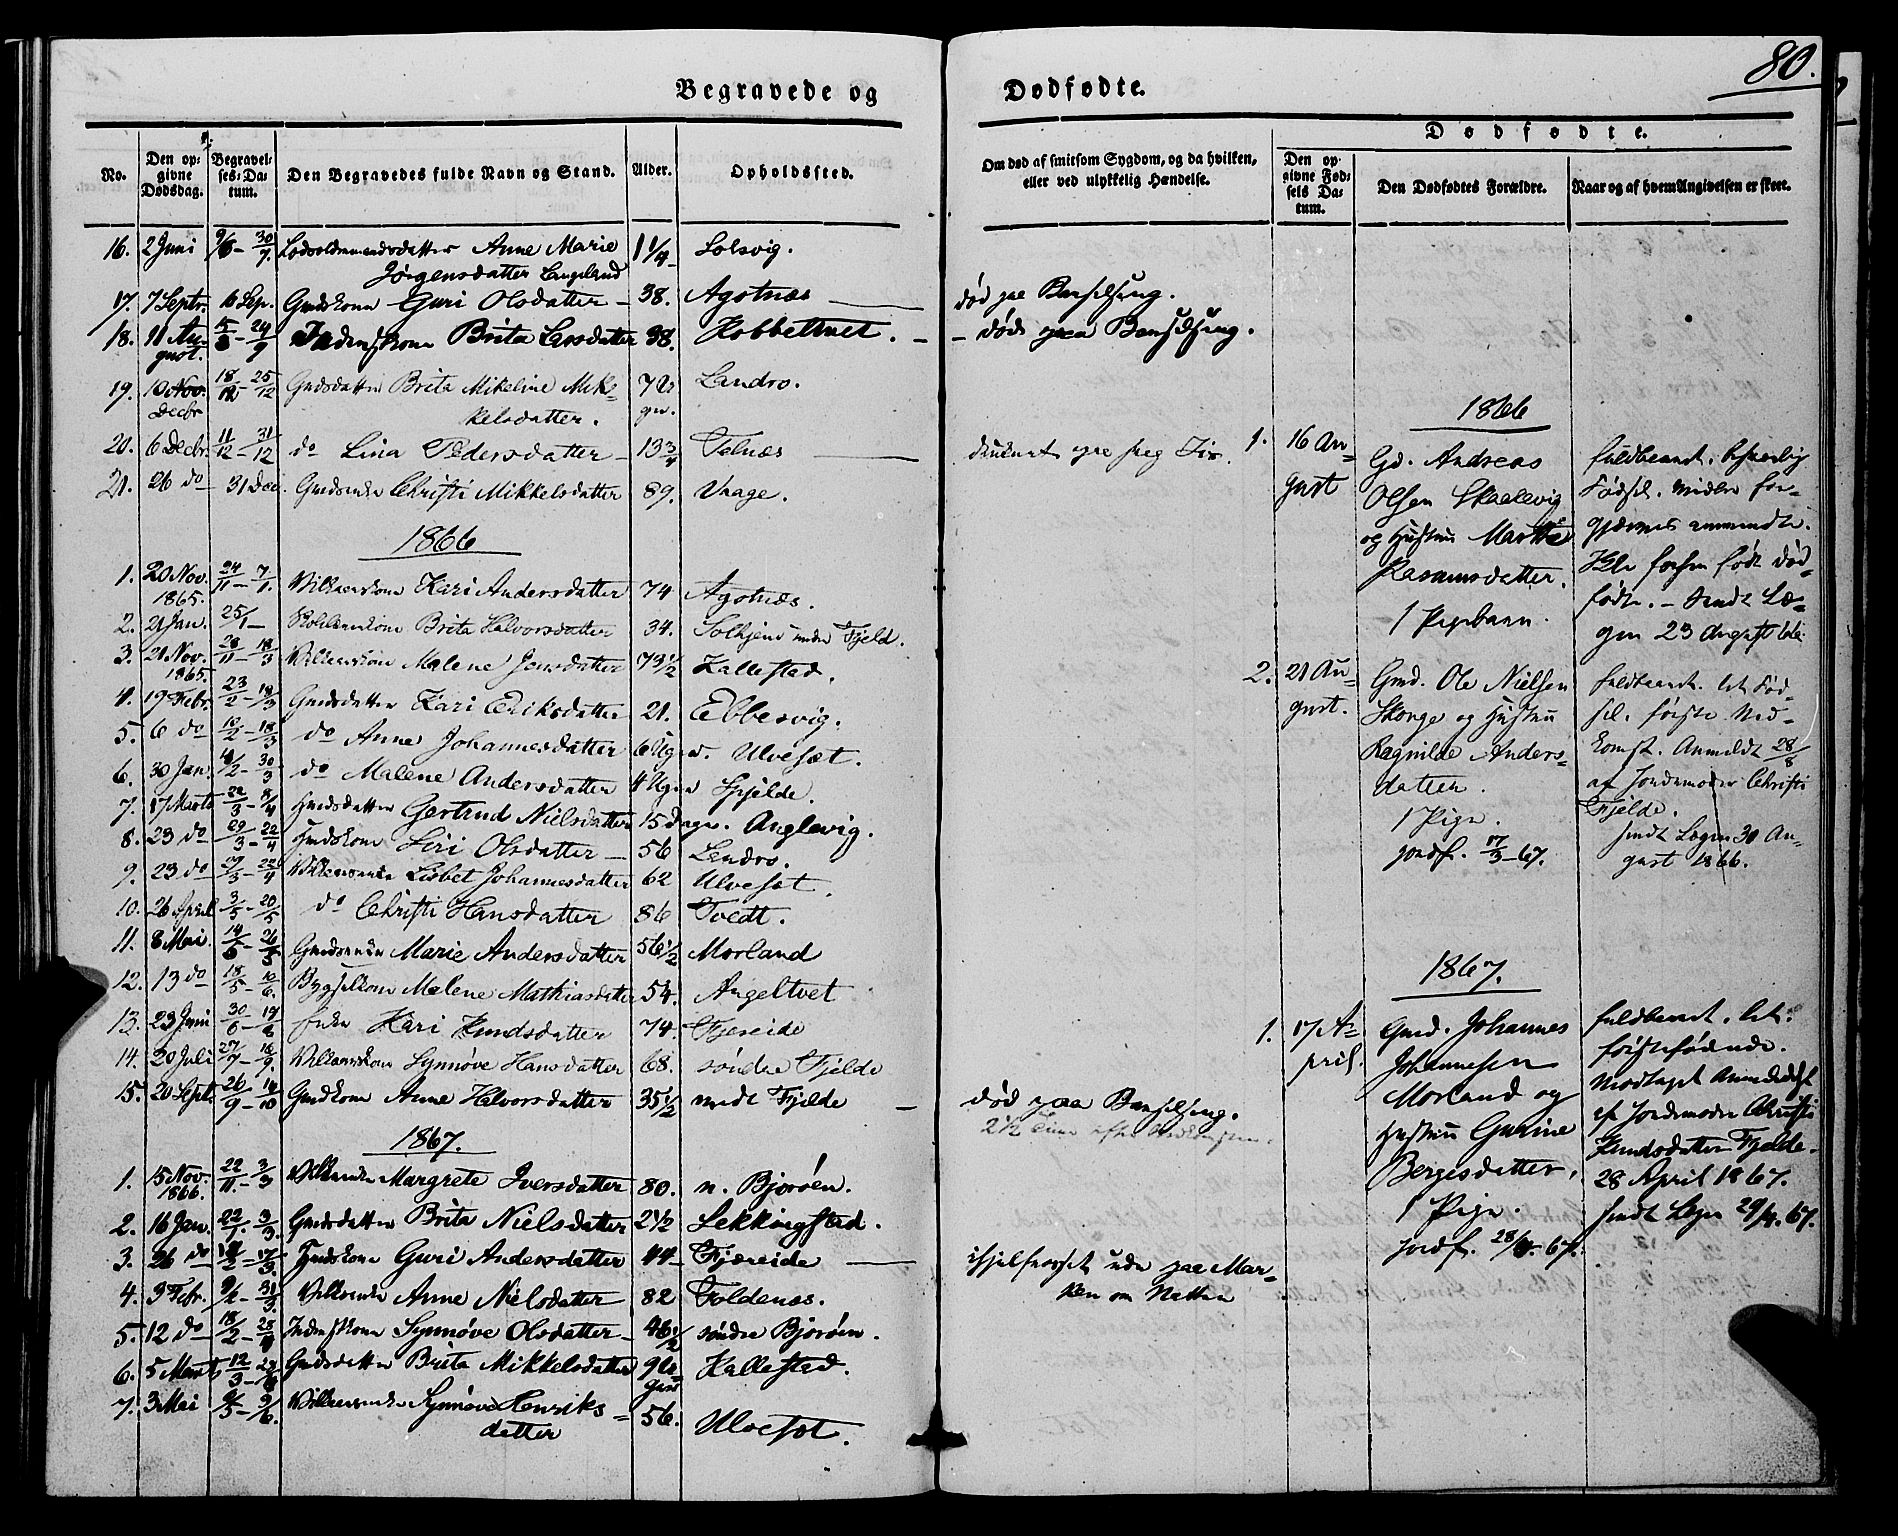 80.
Begravede og Dødfødte.
No.
Den opgivne Dødsdag.
Begravelses-Datum.
Den Begravedes fulde Navn og Stand.
Alder.
Opholdssted.
Om død af smitsom Sygdom, og da hvilken, eller ved ulykkelig Hændelse.
Dødfødte.
Den opgivne Fødsels Datum.
Den Dødfødtes Forældre.
Naar og af hvem Angivelsen er skeet.
16. 2 Juni 9/6 - 30/7. Anne Marie 1 1/4 Solsvig.
Jørgensdatter Langeland
17. 7 Septr. 16 Sep. Gmdskone Guri Olsdatter 38. Agotnæs død paa Barselseng.
18. 11 August. 15/8 - 24/9 Brita Larsdatter 38. Kobbeltvet. død paa Barselseng.
19. 10 Nov. Decbr 18/12 - 25/12 Gmdsdatter Brita Mikeline Mikkelsdatter. 7 Landro.
20. 6 Decbr. 11/12 - 31/12 do Lina Pedersdatter 13 3/4 Telnæs
21. 26 do 31 Dec. Gmdsenke Christi Mikkelsdatter 89. Vaage.
1866
1. 20 Nov. 1865. 24/11 - 7/1. Vilkaarskone Kari Andersdatter 74 Agotnæs.
2. 21 Jan. 25/1 Brita Halvorsdatter 34. Fjeld.
3. 21 Nov. 1865. 28/11 - 18/3 Vilkaarskone Malene Jensdatter 73 1/2 Kallestad.
4. 19 Febr. 23/2 - 18/3 Gmdsdatter Kari Eriksdatter 21. Ebbesvig.
5. 6 do 10/2 - 18/3 do Anne Johannesdatter 6 Uger. Ulvesæt.
6. 30 Jan. 10/2 - 30/3 do Malene Andersdatter 4 Uger Spjelde.
7. 17 Marts 22/3 - 8/4 Gertrud Nielsdatter 15 Dage. Anglevig.
8. 23 do 29/3 - 22/4 Siri Olsdatter 56 Landro.
9. 23 do 27/3 - 22/4 Vilkaarsenke Lisbet Johannesdatter 62 Ulvesæt.
10. 26 April 3/5 - 20/5 do Christi Hansdatter 86 Tvedt.
11. 8 Mai. Gmdsenke Marie Andersdatter 56 1/2 Morland
12. 13 do 18/5 - 10/6. Malene Mathiasdatter 54. Angeltvet
13. 23 Juni 30/6 - 19/8 Enke Kari Knudsdatter 74. Fjereide
14. 20 Juli 27/7 - 16/9. Vilkaarskone Synnøve Hansdatter 68. søndre Fjelde
15. 20 Septr. 26/9 - 14/10 Gmdskone Anne Halvorsdatter 35 1/2 medt Fjelde død paa Barselseng.
1867.
1. 15 Nov. 1866. 22/11. - 3/3 Vilkaarsenke Margrete Iversdatter 80. n. Bjorøen.
2. 16 Jan. 22/1. - 3/3. Gmdsdatter Brita Nielsdatter 2 1/2 Lekkingstad.
3. 26 do Gmdskone Guri Andersdatter 44 Fjæreide ihjelfrosset ude paa Marken om Natten
4. 3 Febr. 9/2 - 31/3. Vilkaarsenke Anne Nielsdatter 82 Foldenæs.
5. 12 do 18/2 - 28/4 Synnøve Olsdatter 46 1/2 søndre Bjorøen.
6. 5 Marts 12/3 Gmdsdatter Brita Mikkelsdatter 9 Kallestad.
7. 3 Mai Vilkaarsenke Synnøve Henriksdatter 56. Ulvesæt.
1866
1. 16 August
Gd. Andreas
Olsen Skaalevig
og Hustru Marthe
Rasmusdatter.
1 Pigebarn.
fuldbaaren.
Fødsel.
Sendt Lægen 23 August
2. 21 August.
Gmd. Ole Nielsen
Skorge og Hustru
Ragnilde Andersdatter.
1 Pige.
jordf. 17/3 - 67.
fuldbaaren. let Fødsel. første Nedkomst. Anmeldt 28/8
af Jordemoder Christi
Fjelde.
sendt Lægen 30 August 1866.
1867.
1. 17 April.
Gmd. Johannes
Johannesen
Morland og
Hustru Gurine
Bergesdatter,
1 Pige.
jordf. 28/4 - 67.
fuldbaaren. let.
førstefødende.
Modtaget Anmeldelse
af Jordemoder Christi
Knudsdatter Fjelde.
28 April 1867.
sendt Lægen 29/4. 67.